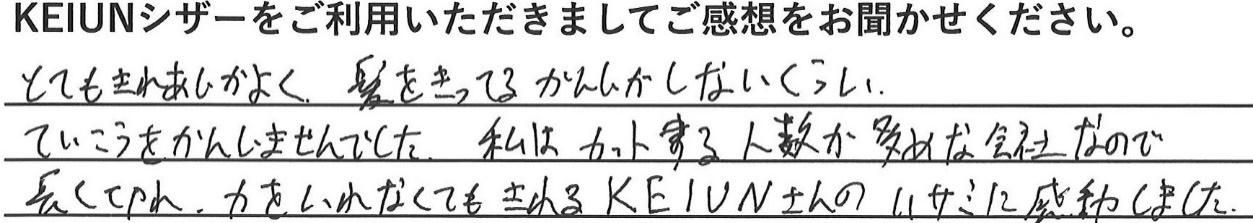 KEIUNシザーをご利用いただきましてご感想をお聞かせください。
とてもきれあじがよく、髪をきってるかんじがしないくらい、
ていこうをかんじませんでした。私はカットする人数が多めな会社なので
長くてやれ、力をいれなくてもきれるKEIUNさんのハサミに感動しました。